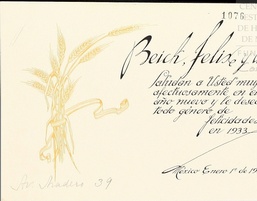 1076
CEN
EST
DE H
DE M
Beick, Felix, y
Saludan a Usted muy
afectuosamente en el
año nuevo y le desea
todo género de
felicidades
en 1933.
México Enero 1º de 19
Madero 29